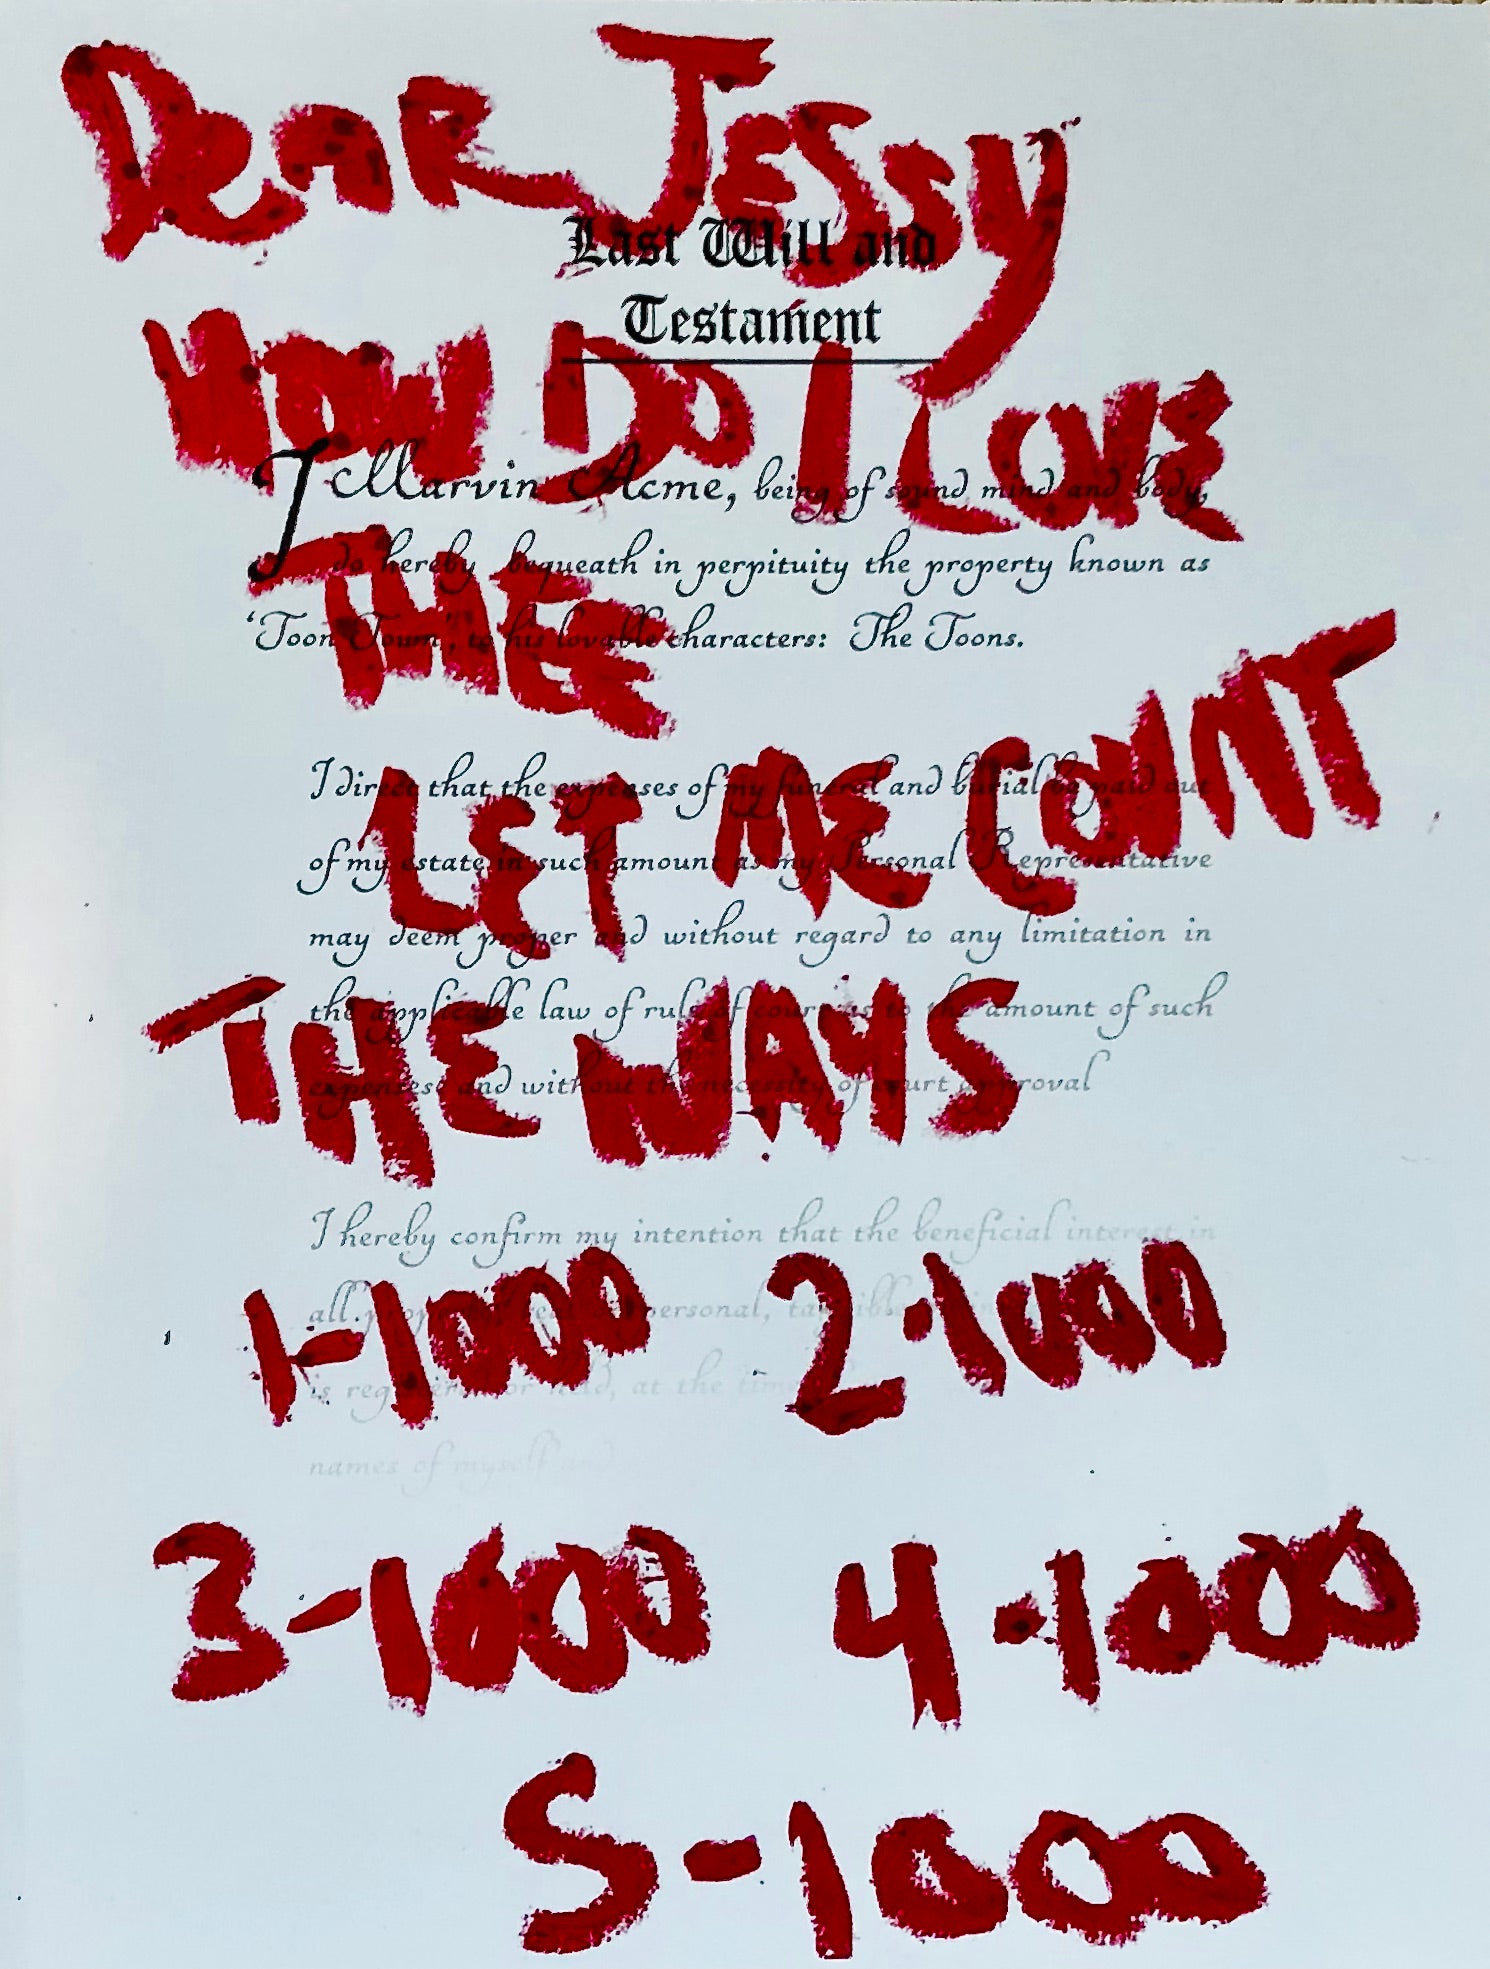 DeaR Jessy
HOW DO I LOVE
THEE
LET ME COUNT
THE WAYS
1-1000 2-1000
3-1000 4-1000
5-1000
Last Will and
Testament
I Marvin Acme, being of sound mind and body,
do hereby bequeath in perpituity the property known as
'Toon Town', to his lovable characters: The Toons.
I direct that the expenses of my funeral and burial be paid out
of my estate in such amount as my Personal Representative
may deem proper and without regard to any limitation in
the applicable law of rule of court as to the amount of such
expenses and without the necessity of court approval
I hereby confirm my intention that the beneficial interest in
all property real or personal,
is registered or held, at the time
names of myself and